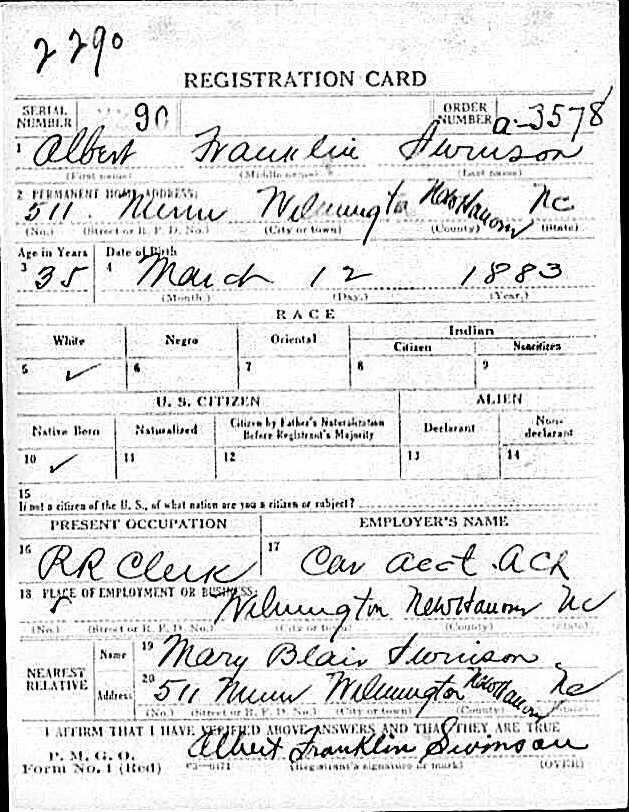 2290
REGISTRATION CARD
SERIAL NUMBER 90 ORDER NUMBER a-3578
1 Albert Franklin Swinson
(First name) (Middle name) (Last name)
2 PERMANENT HOME ADDRESS:
511 Wilmington New Hanover NC
(No.) (Street or R. F. D. No.) (City or town) (County) (State)
Age in Years Date of Birth
3 35 4 March 12 1883
(Month.) (Day.) (Year.)
RACE
White Negro Oriental Indian
Citizen Noncitizen
5 ✓ 6 7 8 9
U. S. CITIZEN ALIEN
Native Born Naturalized Citizen by Father's Naturalization Before Registrant's Majority Declarant Non-declarant
10 ✓ 11 12 13 14
15
If not a citizen of the U. S., of what nation are you a citizen or subject?
PRESENT OCCUPATION EMPLOYER'S NAME
16 RR Clerk 17 Car Acct. ACL
18 PLACE OF EMPLOYMENT OR BUSINESS:
Wilmington New Hanover NC
(No.) (Street or R. F. D. No.) (City or town) (County) (State)
NEAREST RELATIVE
Name 19 Mary Blair Swinson
Address 20 511 Wilmington New Hanover NC
(No.) (Street or R. F. D. No.) (City or town) (County) (State)
I AFFIRM THAT I HAVE VERIFIED ABOVE ANSWERS AND THAT THEY ARE TRUE
P. M. G. O.
Form No. 1 (Red) Albert Franklin Swinson
(Registrant's signature or mark) (OVER)